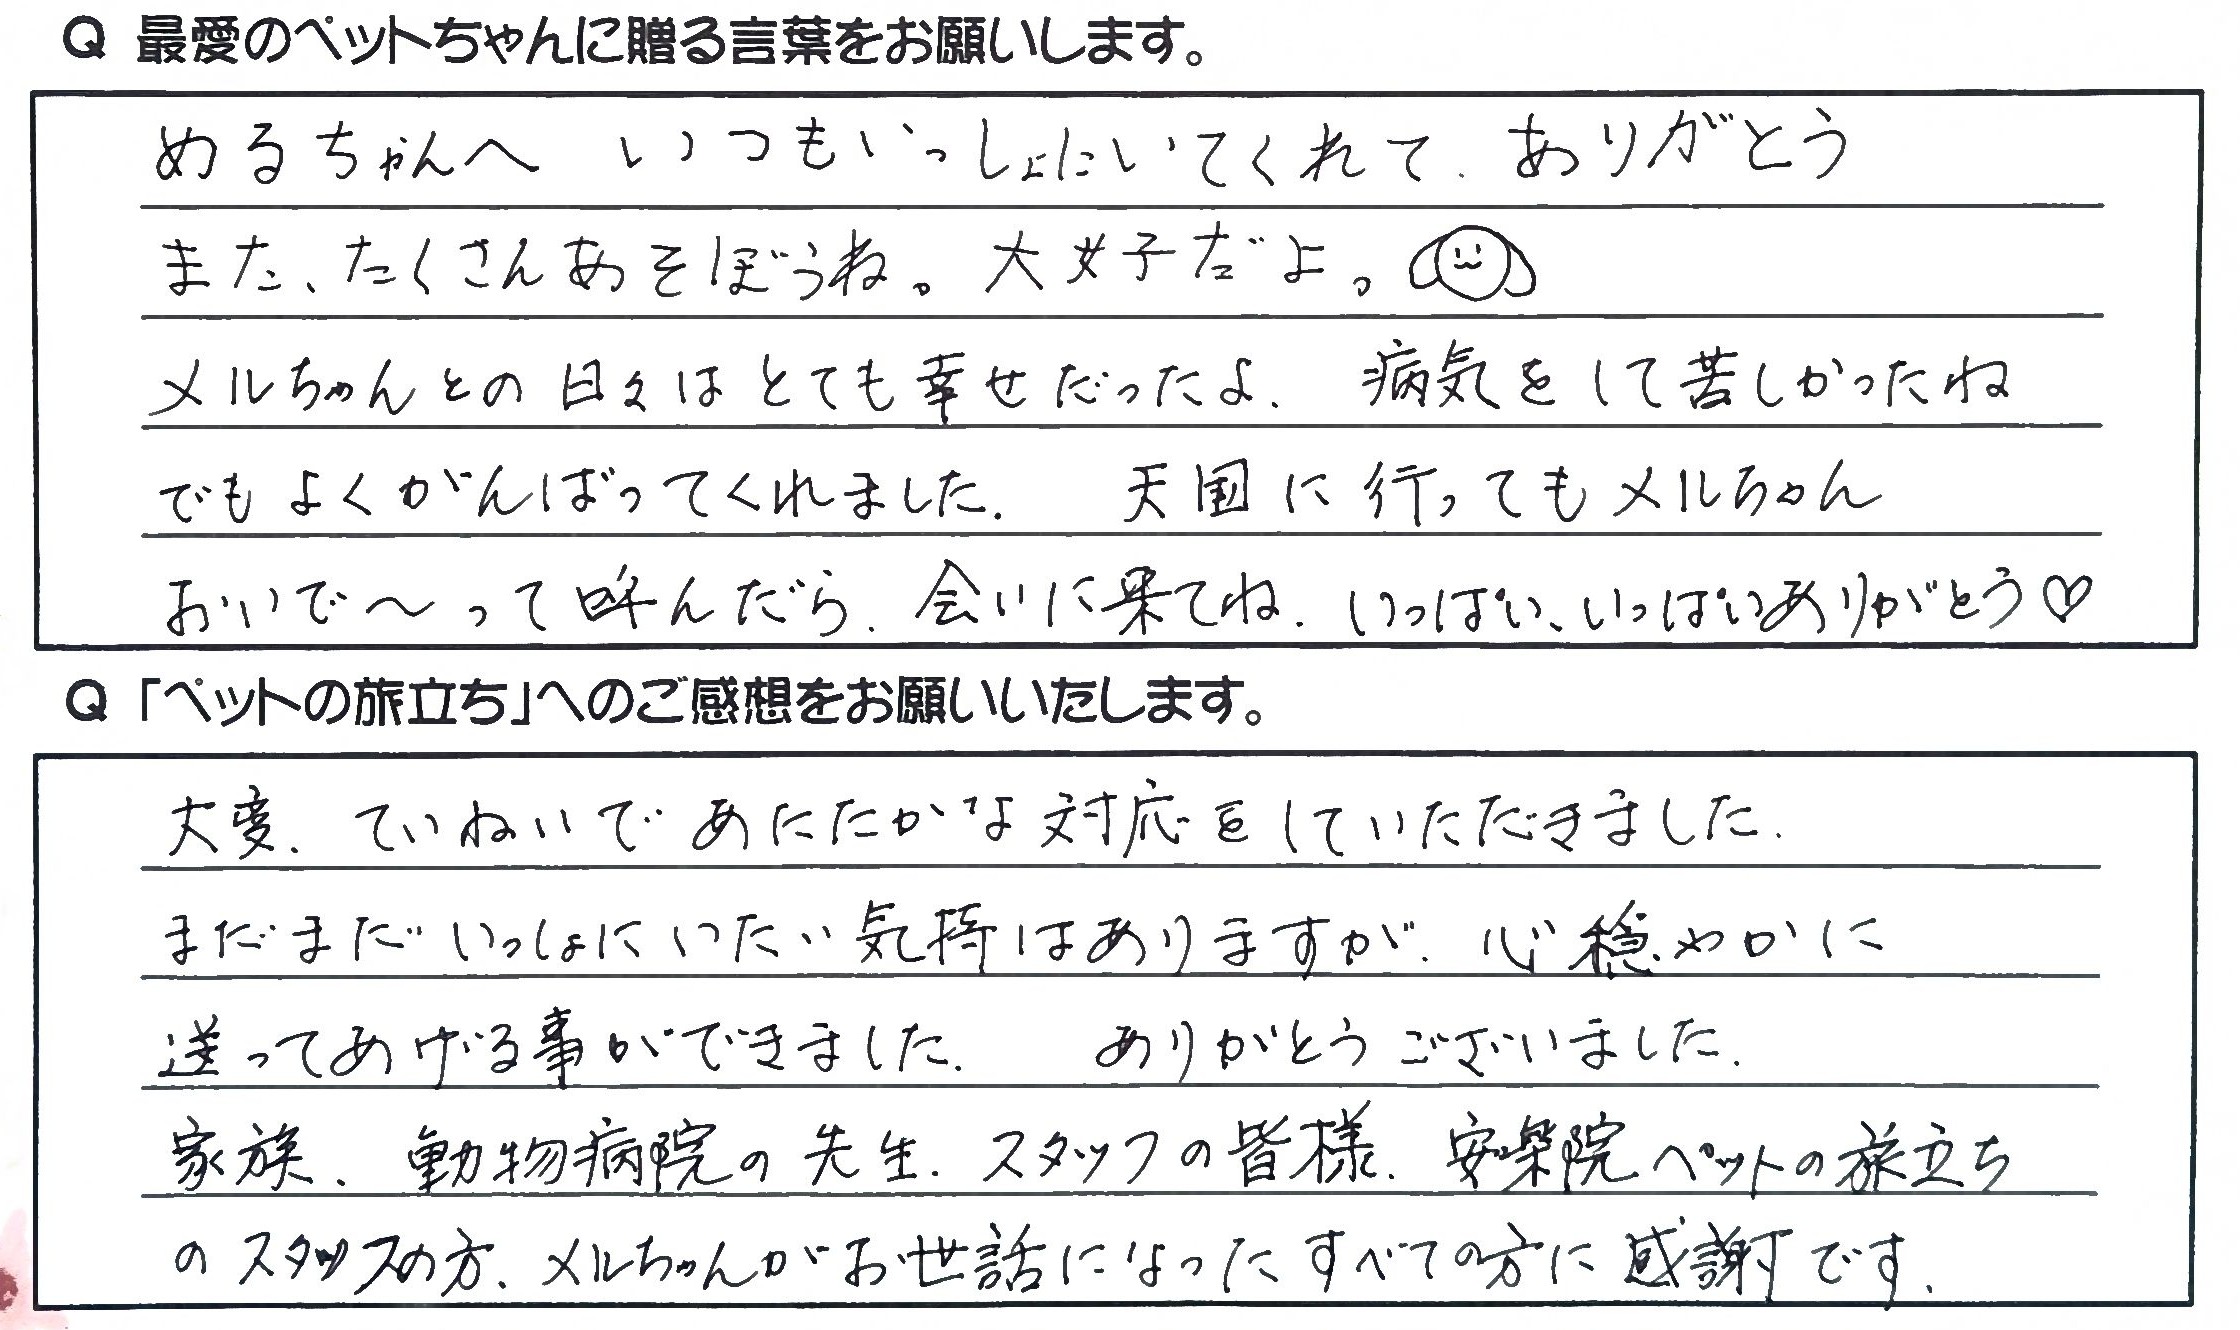 Q 最愛のペットちゃんに贈る言葉をお願いします。
めるちゃんへ いつもいっしょにいてくれて. ありがとう
また、たくさんあそぼうね。大好きだよ。
メルちゃんとの日々はとても幸せだったよ. 病気をして苦しかったね
でもよくがんばってくれました. 天国に行ってもメルちゃん
おいで〜って呼んだら. 会いに来てね. いっぱい、いっぱいありがとう♡
Q 「ペットの旅立ち」へのご感想をお願いいたします。
大変. ていねいであたたかな対応をしていただきました.
まだまだいっしょにいたい気持はありますが. 心穏やかに
送ってあげる事ができました. ありがとうございました.
家族. 動物病院の先生. スタッフの皆様. 安楽院ペットの旅立ち
のスタッフの方. メルちゃんがお世話になったすべての方に感謝です.